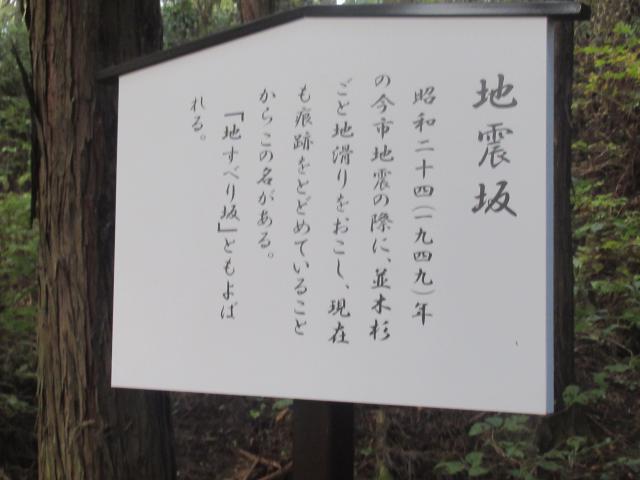 地震坂
昭和二十四(一九四九)年
の今市地震の際に、並木杉
ごと地滑りをおこし、現在
も痕跡をとどめていること
からこの名がある。
『地すべり坂』ともよば
れる。